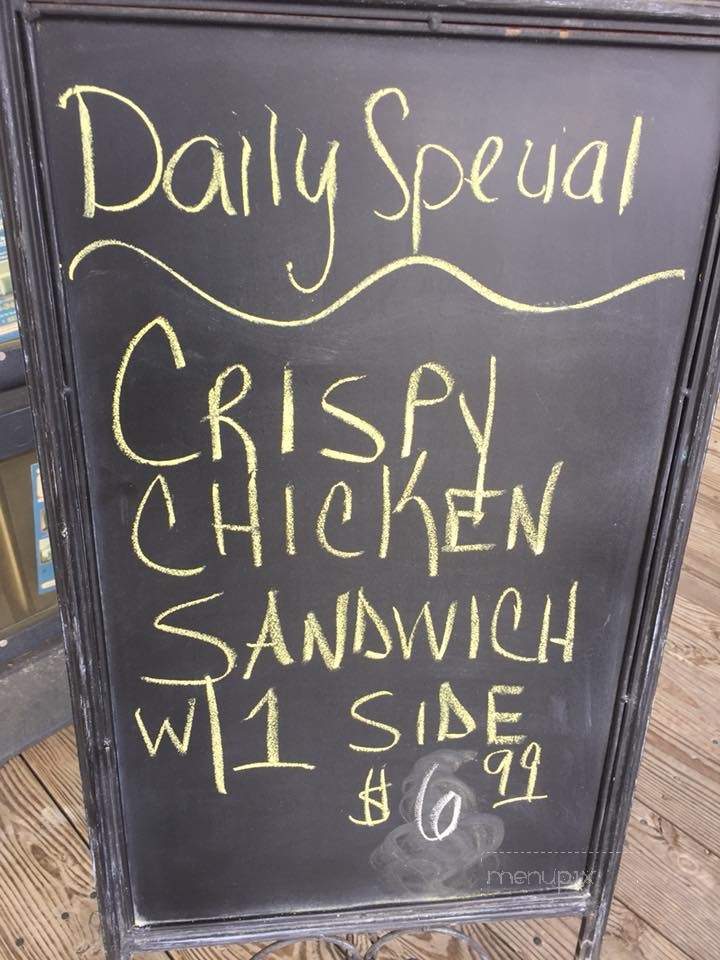 Daily Special
CRISPY
CHICKEN
SANDWICH
W/1 SIDE
$6.99
menupix